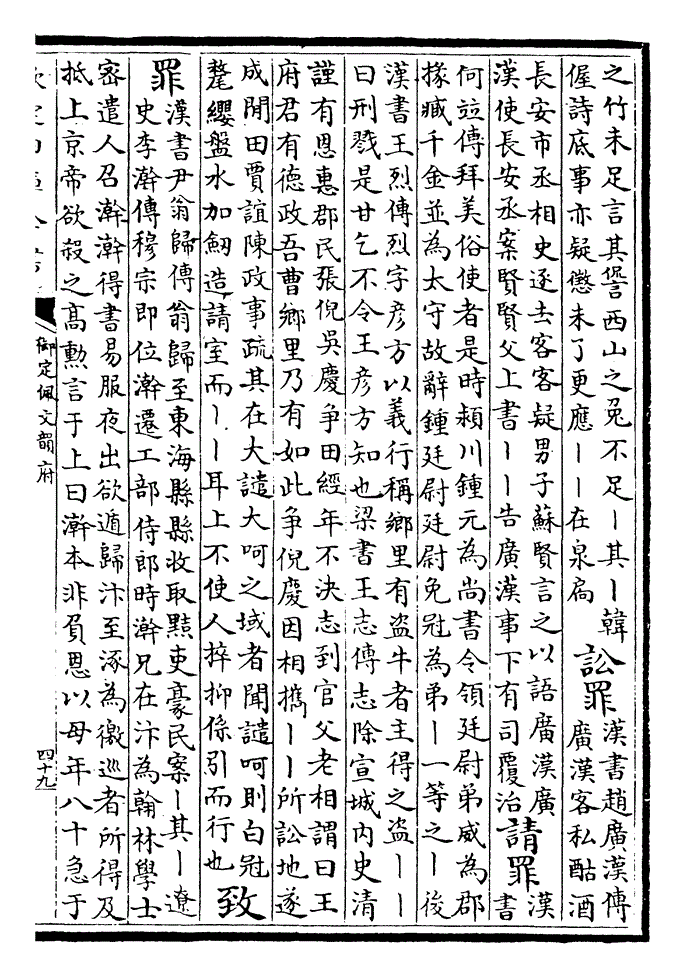 之竹未足言其諐西山之兔不足丨其丨韓
偓詩底事亦疑懲未了更應丨丨在泉扃
訟罪
漢書趙廣漢傳
廣漢客私酤酒
長安市丞相史逐去客客疑男子蘇賢言之以語廣漢廣
漢使長安丞案賢賢父上書丨丨告廣漢事下有司覆治
請罪
漢
書
何竝傳拜美俗使者是時潁川鍾元為尚書令領廷尉弟威為郡
掾臧千金並為太守故辭鍾廷尉廷尉免冠為弟丨一等之丨後
漢書王烈傳烈字彥方以義行稱鄉里有盜牛者主得之盜丨丨
曰刑戮是甘乞不令王彥方知也梁書王志傳志除宣城內史清
謹有恩惠郡民張倪吳慶爭田經年不決志到官父老相謂曰王
府君有德政吾曹鄉里乃有如此爭倪慶因相攜丨丨所訟地遂
成閒田賈誼陳政事疏其在大譴大呵之域者聞譴呵則白冠
氂纓盤水加劒造請室而丨丨耳上不使人捽抑係引而行也
致
罪
漢書尹翁歸傳翁歸至東海縣縣收取黠吏豪民案丨其丨遼
史李澣傳穆宗即位澣遷工部侍郎時澣兄在汴為翰林學士
密遣人召澣澣得書易服夜出欲遁歸汴至涿為徼巡者所得及
抵上京帝欲殺之高勲言于上曰澣本非負恩以母年八十急于
御定佩文韻府
四十九